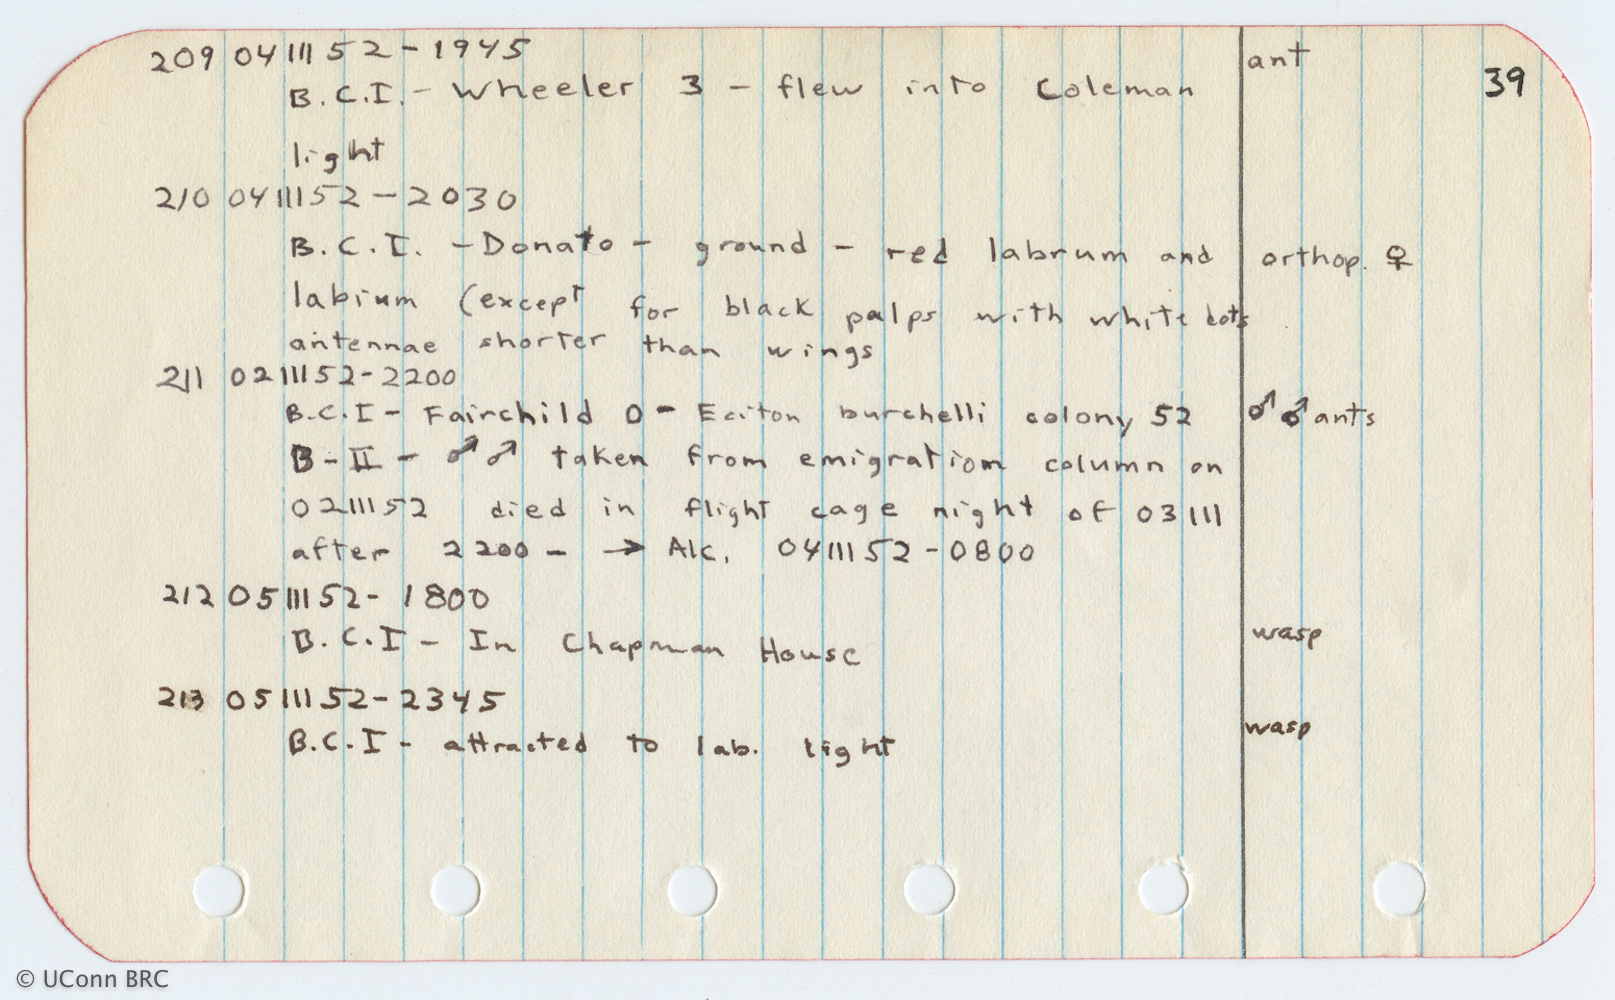 209 04111152-1945 ant
B.C.I. - Wheeler 3 - flew into Coleman 39
light
210 04111152-2030
B.C.I. - Donato - ground - red labrum and orthop. ♀
labium (except for black palps with white dots
antennae shorter than wings
211 02111152-2200
B.C.I - Fairchild 0 - Eciton burchelli colony 52 ♂♂ ants
B-II - ♂♂ taken from emigration column on
02111152 died in flight cage night of 03111
after 2200 - → Alc. 04111152-0800
212 05111152-1800
B.C.I - In Chapman House wasp
213 05111152-2345
B.C.I - attracted to lab. light wasp
© UConn BRC